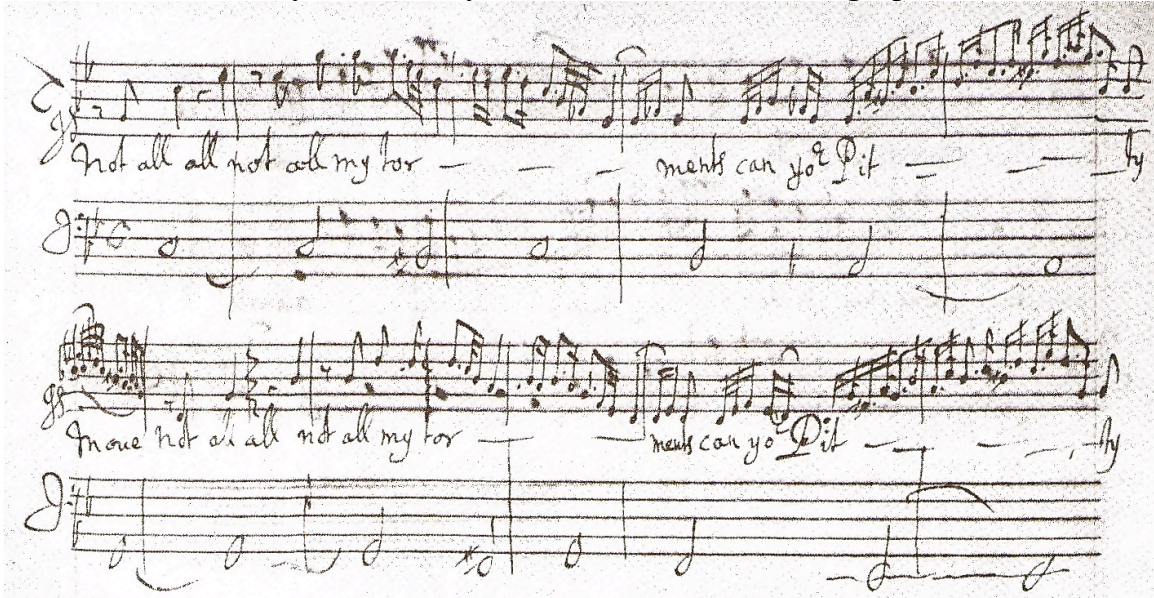 Not all all not all my tor — — — ments can yoͬ Pit — — — ty
moue Not all all not all my tor — — ments can yoͬ Pit — — — ty